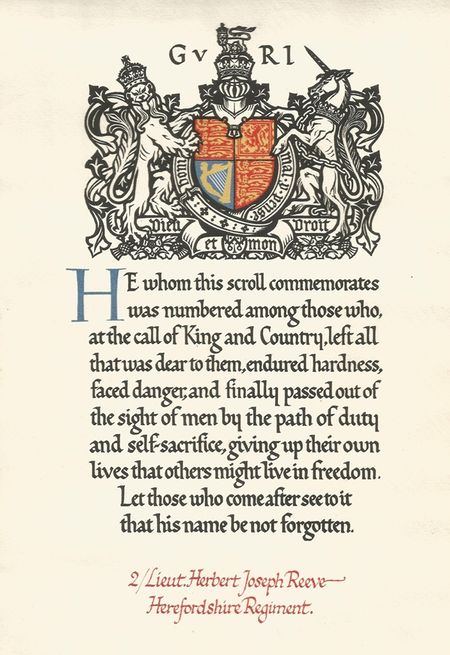 GVRI
Honi soit qui mal y pense
Dieu et mon Droit
HE whom this scroll commemorates
was numbered among those who,
at the call of King and Country, left all
that was dear to them, endured hardness,
faced danger, and finally passed out of
the sight of men by the path of duty
and self-sacrifice, giving up their own
lives that others might live in freedom.
Let those who come after see to it
that his name be not forgotten.
2/Lieut. Herbert Joseph Reeve
Herefordshire Regiment.